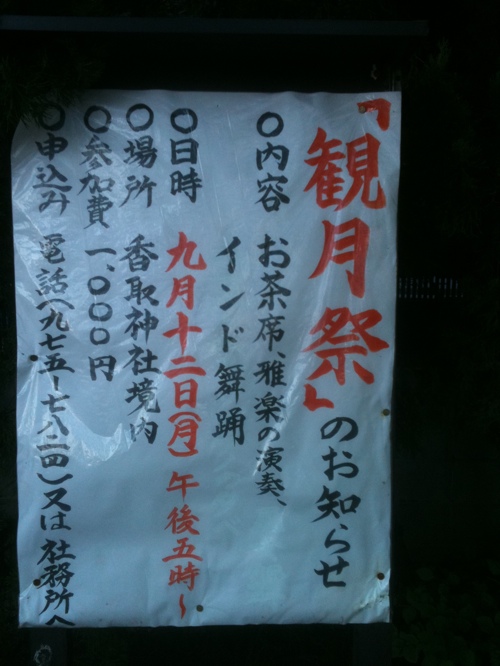 「観月祭」のお知らせ
○内容 お茶席、雅楽の演奏、
インド舞踊
○日時 九月十二日(月)午後五時～
○場所 香取神社境内
○参加費 一、〇〇〇円
○申込み 電話(九七五-七八二四)又は社務所へ